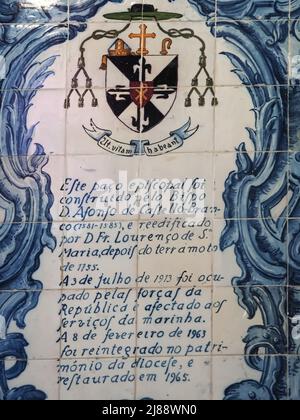 Ut vitam habeant
Este paço episcopal foi
construido pelo Bispo
D. Afonso de Castello-Bran-
co (1581-1585), e reedificado
por D. Fr. Lourenço de S.ta
Maria, depois do terramoto
de 1755.
A 3 de julho de 1913 foi ocu-
pado pelas forças da
República e afectado aos
serviços da marinha.
A 8 de fevereiro de 1963
foi reintegrado no patri-
mónio da diocese, e
restaurado em 1965.